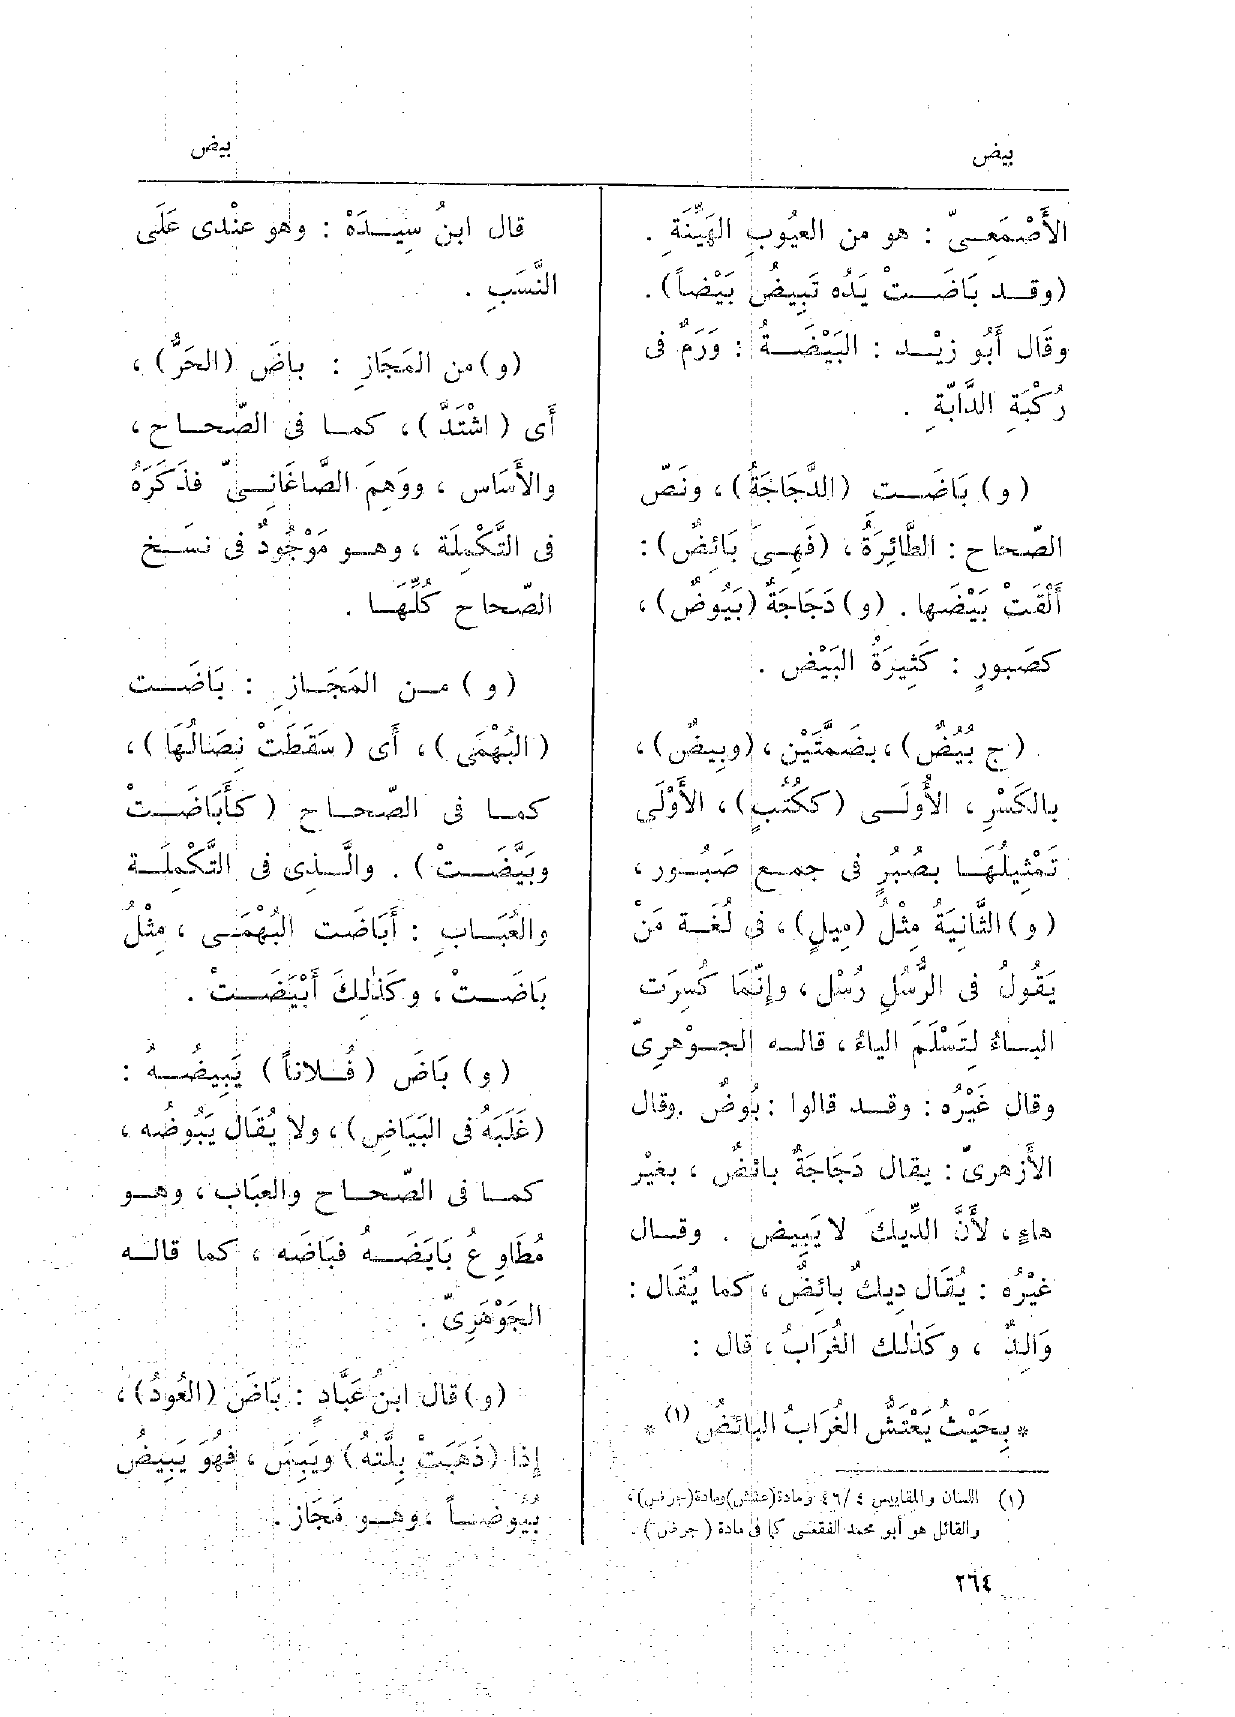 بيض
بيض
الأَصْمَعِىّ : هو من العيُوبِ الهَيِّنَةِ .
(وقد بَاضَتْ يَدُه تَبِيضُ بَيْضاً).
وقَال أَبُو زيْد : البَيْضَةُ : وَرَمٌ فى
رُكْبَةِ الدَّابّةِ .
(و) بَاضَتِ (الدَّجَاجَةُ) ، ونَصّ
الصّحاح : الطَّائِرَةُ ، (فَهِىَ بَائِضٌ) :
أَلْقَتْ بَيْضَها . (و) دَجَاجَةٌ (بَيُوضٌ) ،
كصَبورٍ : كَثِيرَةُ البَيْض .
(ج بُيُضٌ) ، بضَمَّتَيْن ، (وبِيضٌ) ،
بالكَسْرِ ، الأُولَى (ككُتُبٍ) ، الأَوْلَى
تَمْثِيلُهَا بصُبُرٍ فى جمع صَبُور ،
(و) الثَّانِيَةُ مِثْلُ (مِيلٍ) ، فى لُغَة مَنْ
يَقُولُ فى الرُّسُلِ رُسْل ، وإِنَّمَا كُسِرَت
الباءُ لِتَسْلَمَ الياءُ ، قاله الجوْهرِىّ
وقال غَيْرُه : وقد قالوا : بُوضٌ . وقال
الأَزهرىّ : يقال دَجَاجَةٌ بائضٌ ، بغيْر
هاءٍ ، لأَنَّ الدِّيكَ لا يَبِيض . وقال
غيْرُه : يُقَال دِيكٌ بائِضٌ ، كما يُقَال :
وَالِدٌ ، وكَذٰلك الغُرَابُ ، قال :
* بِحَيْثُ يَعْتَشُّ الغُرَابُ البائضُ (١) *
(١) اللسان والمقاييس ٤ /٤٦ ومادة (عشش) ومادة (جرض) ،
والقائل هو أبو محمد الفقعسى كما فى مادة ( جرض ) .
قال ابنُ سِيدَهْ : وهو عنْدى عَلَى
النَّسَبِ .
(و) من المَجَازِ : باضَ (الحَرُّ) ،
أَى ( اشْتَدَّ ) ، كما فى الصّحاح ،
والأَسَاس ، ووَهِمَ الصَّاغَانِىّ فذَكَرَهُ
فى التَّكْمِلَة ، وهو مَوْجُودٌ فى نسَخ
الصّحاح كُلِّهَا .
(و) من المَجَازِ : بَاضَت
(البُهْمَى) ، أَى (سَقَطَتْ نِصَالُهَا) ،
كما فى الصّحاح (كأَبَاضَتْ
وبَيَّضَتْ) . والَّذى فى التَّكْمِلَة
والعُبَاب : أَبَاضَت البُهْمَى ، مِثْلُ
بَاضَتْ ، وكَذٰلِكَ أَبْيَضَتْ .
(و) بَاضَ (فُلاناً) يَبِيضُهُ :
(غَلَبَهُ فى البَيَاضِ) ، ولا يُقَال يَبُوضُه ،
كما فى الصّحاح والعبَاب ، وهو
مُطَاوِعُ بَايَضَهُ فبَاضَه ، كما قاله
الجَوْهَرِىّ .
(و) قال ابنُ عَبَّادٍ : بَاضَ (العُودُ) ،
إذا (ذَهَبَتْ بِلَّتهُ) ويَبِسَ ، فهُوَ يَبِيضُ
بُيُوضاً ، وهو مَجَاز .
٢٦٤